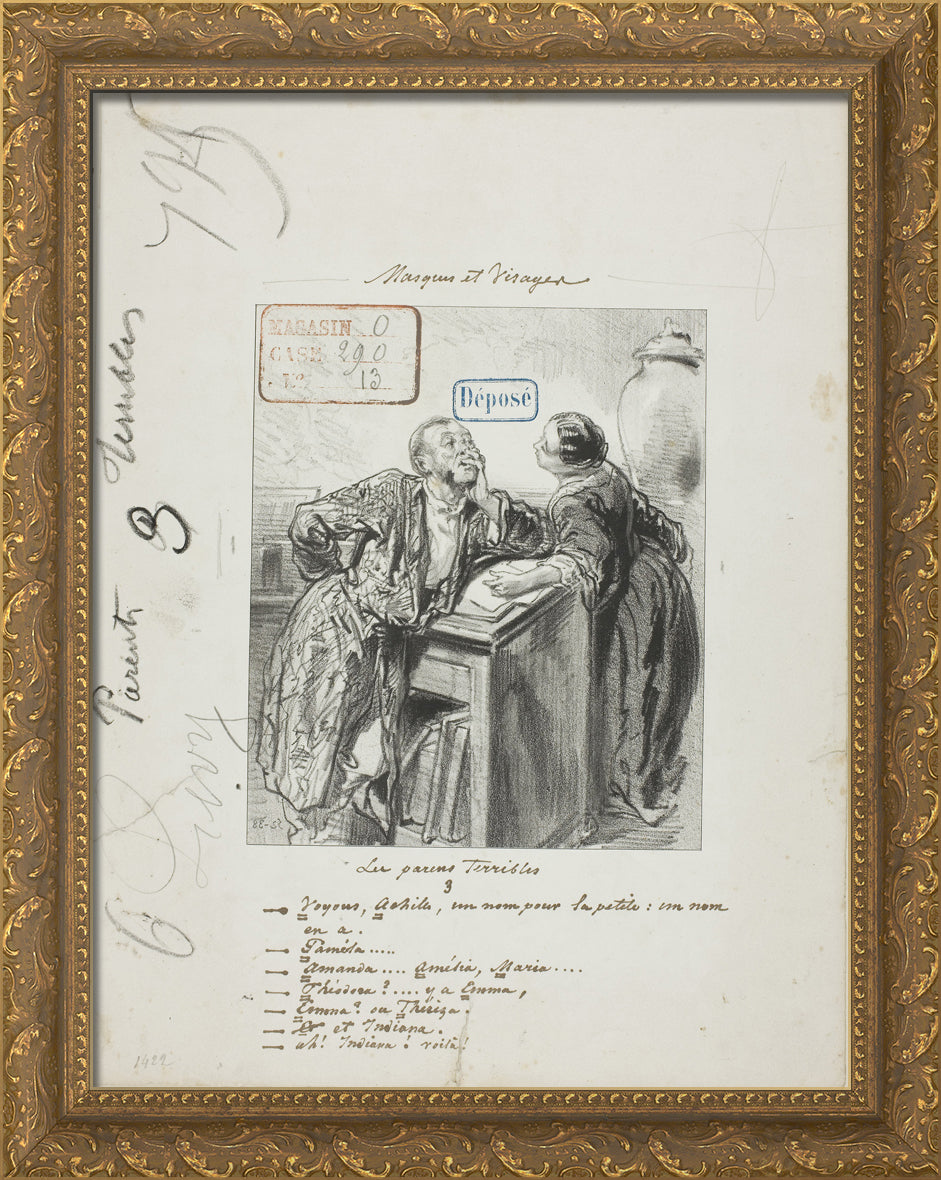 Masques et Visages
MAGASIN 0
CASE 290
No 13
Déposé
Les parens Terribles
3
— Voyons, Achile, un nom pour la petite : un nom
en a .
— Paméla .....
— Amanda .... Amélia, Maria ....
— Théodora ? .... y a Emma,
— Emma ? ou Théréza .
— et Indiana .
— ah ! Indiana ! voilà !
Parents Terribles
3
1422